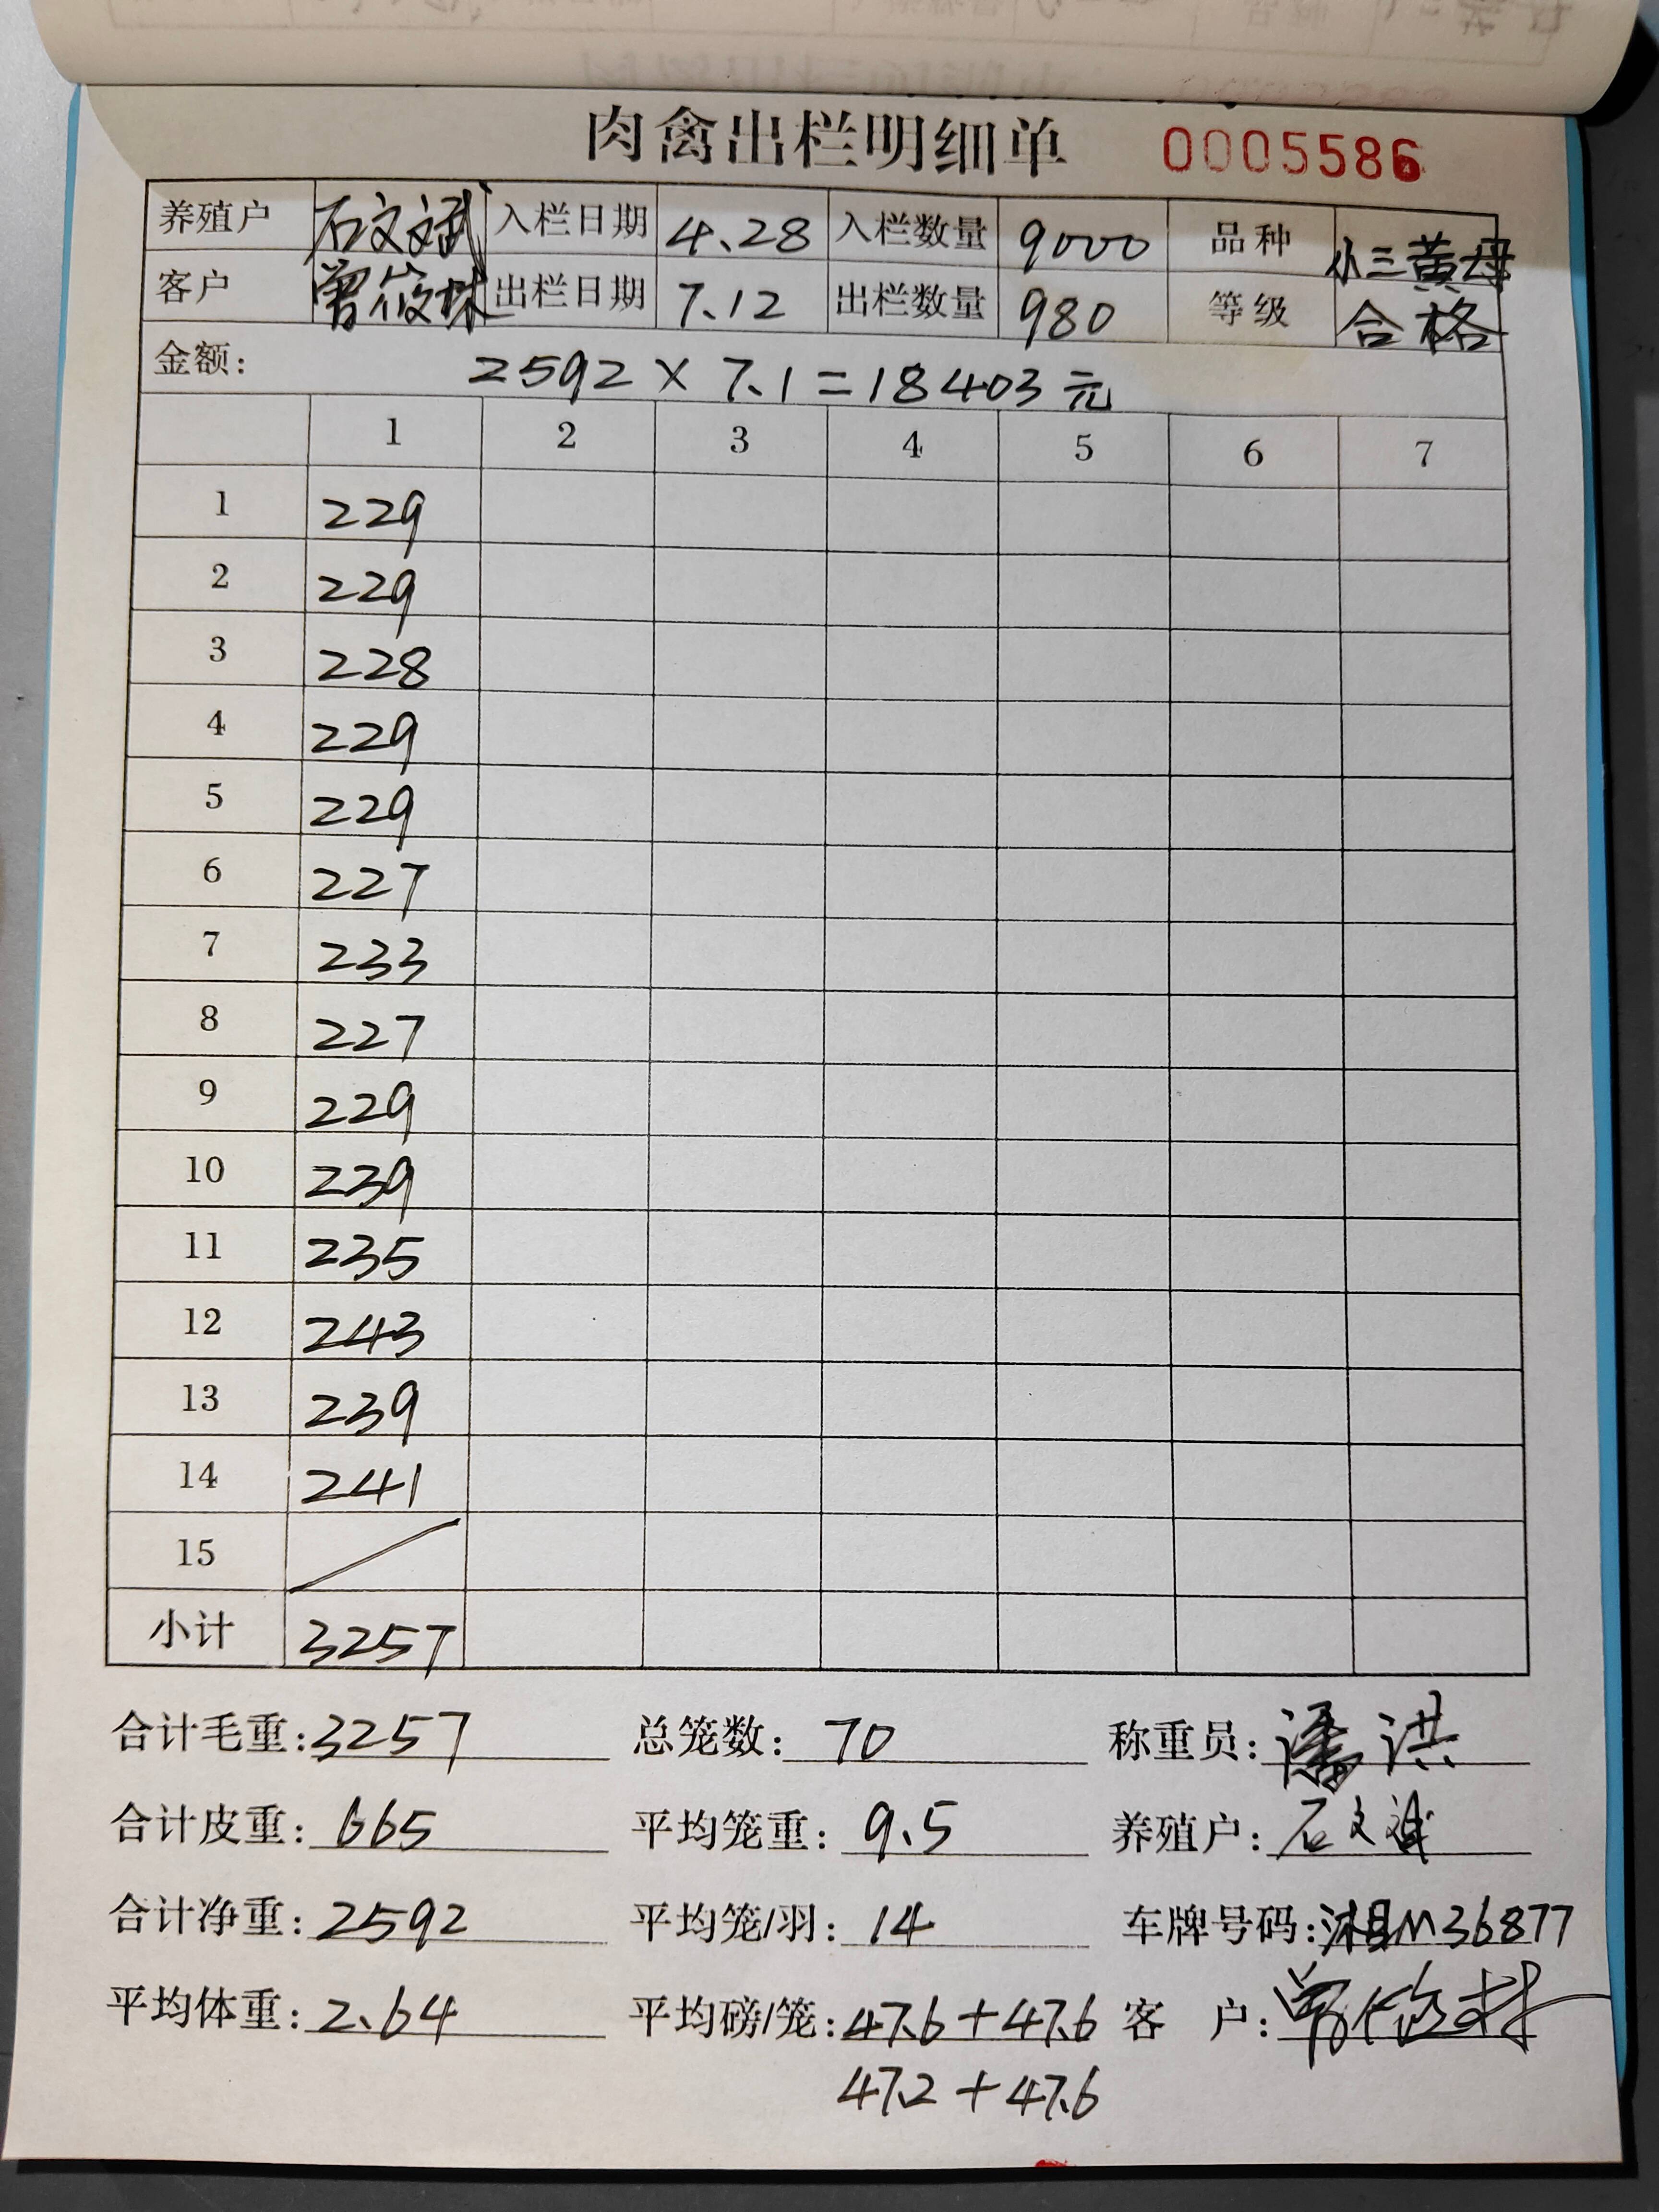 肉禽出栏明细单 0005586
养殖户 石文斌 入栏日期 4.28 入栏数量 9000 品种 小三黄母
客户 曾筱林 出栏日期 7.12 出栏数量 980 等级 合格
金额: 2592 × 7.1 = 18403元
1 2 3 4 5 6 7
1 229
2 229
3 228
4 229
5 229
6 227
7 233
8 227
9 229
10 239
11 235
12 243
13 239
14 241
15
小计 3257
合计毛重: 3257 总笼数: 70 称重员: 潘洪
合计皮重: 665 平均笼重: 9.5 养殖户: 石文斌
合计净重: 2592 平均笼/羽: 14 车牌号码: 湘M36877
平均体重: 2.64 平均磅/笼: 47.6+47.6 客 户: 曾筱林
47.2+47.6